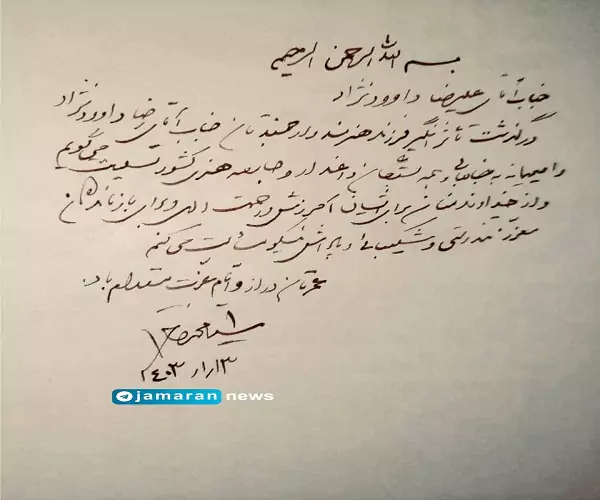 بسم الله الرحمن الرحیم
جناب آقای علیرضا داوودنژاد
درگذشت تأثرانگیز فرزند هنرمند و ارجمندتان جناب آقای رضا داوودنژاد
را صمیمانه به جنابعالی و همه بستگان داغدار و جامعه هنری کشور تسلیت می‌گویم
و از خداوند منان برای ایشان آمرزش و رحمت الهی و برای بازماندگان
معزز تندرستی و شکیبایی و پاداش نیکو مسئلت می‌کنم
عمرتان دراز و ایام عزت مستدام باد.
سید محمد خاتمی
۱۴۰۳/۱/۱۳
jamaran news